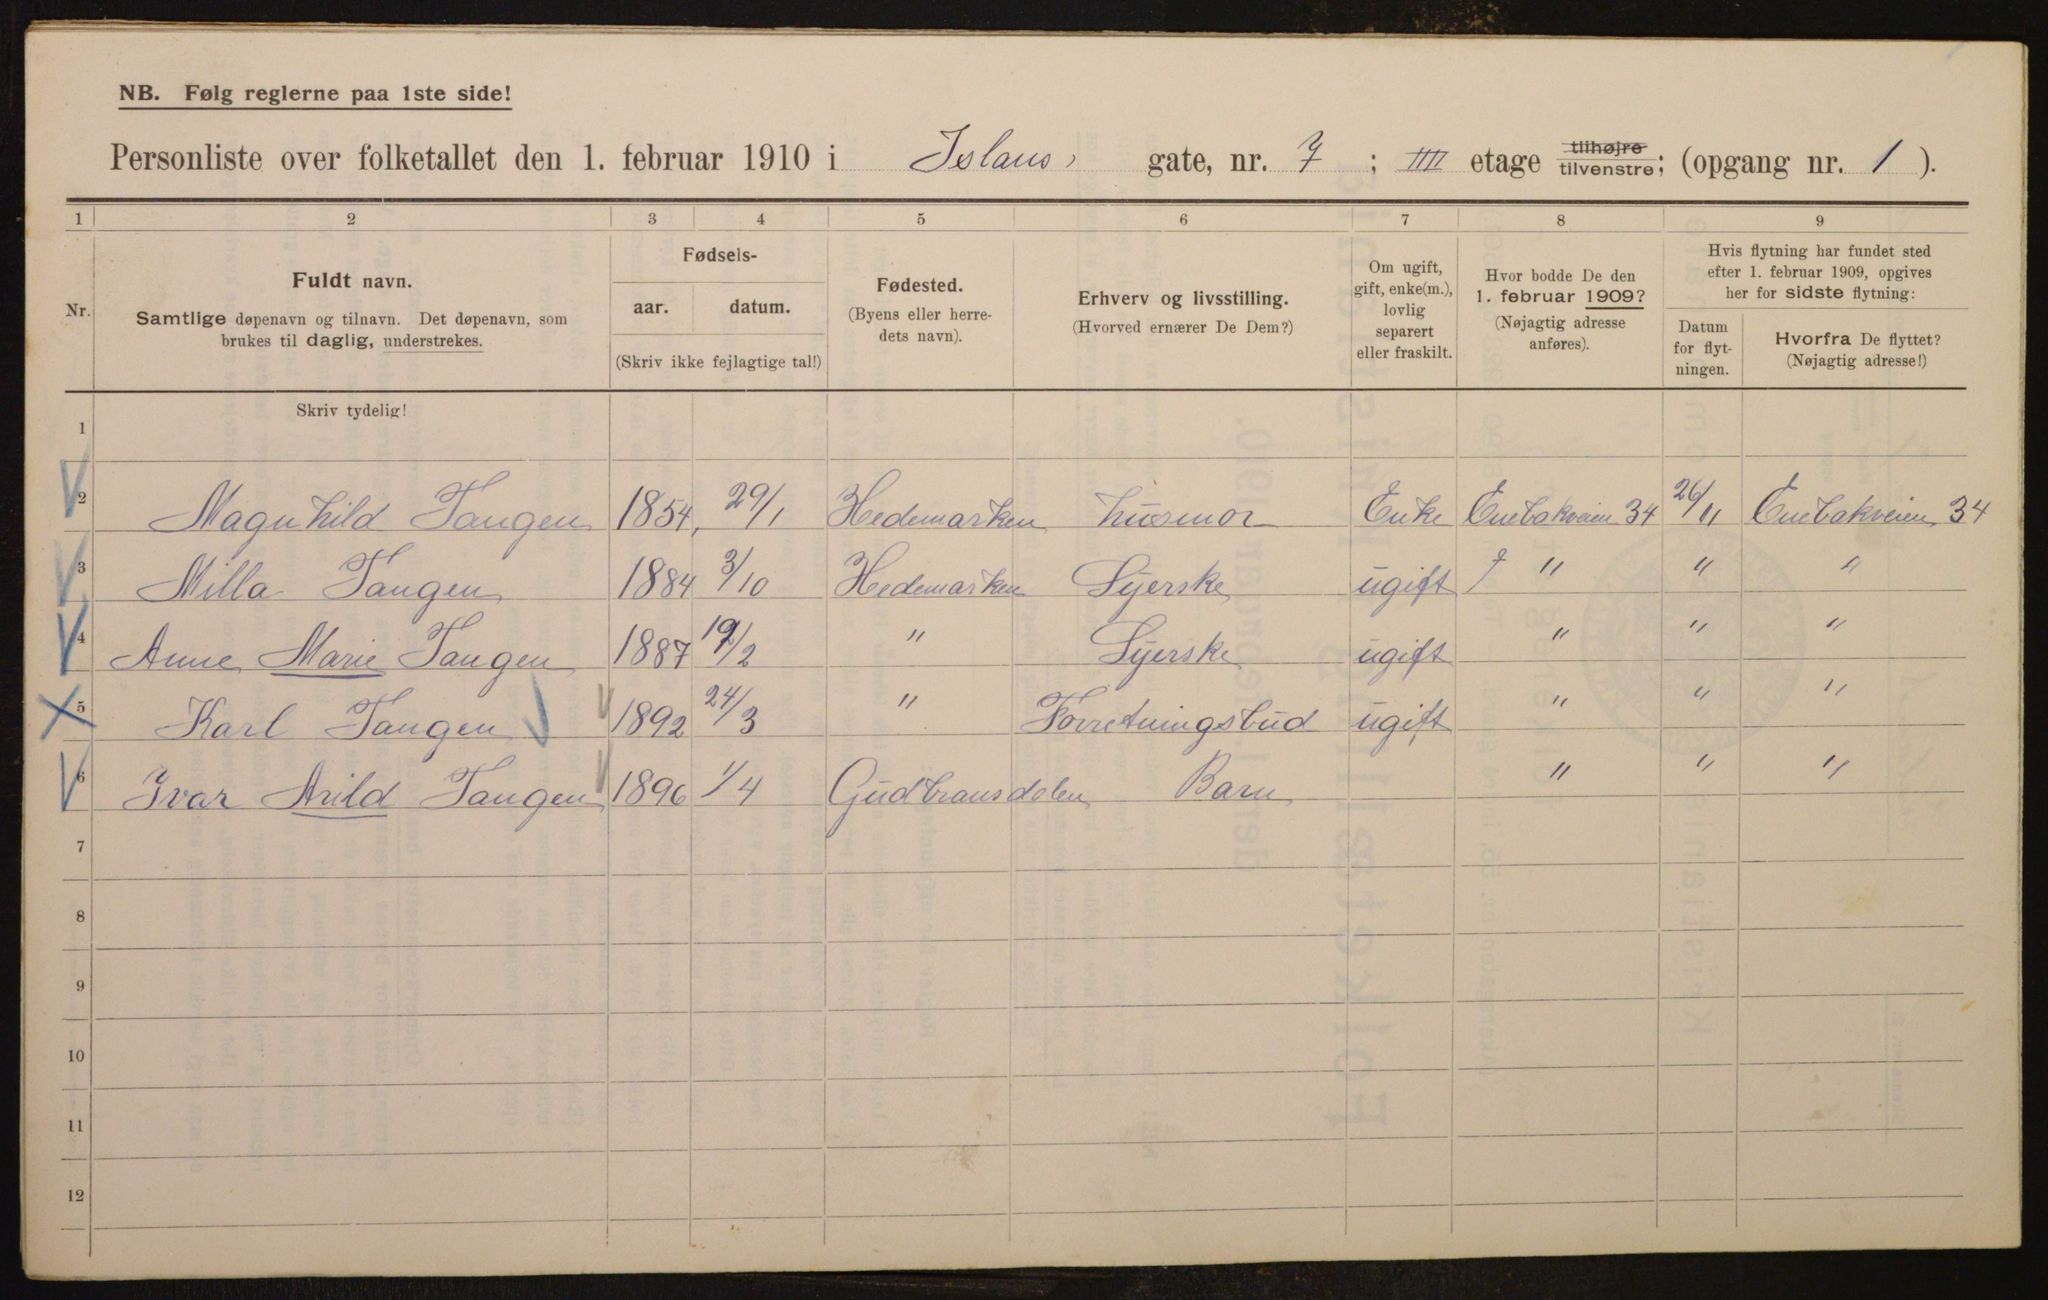 NB. Følg reglerne paa 1ste side!
Personliste over folketallet den 1. februar 1910 i Islans gate, nr. 7 ; IIII etage tilhøjre tilvenstre; (opgang nr. 1 ).
1 2 3 4 5 6 7 8 9
Nr.
Fuldt navn.
Samtlige døpenavn og tilnavn. Det døpenavn, som
brukes til daglig, understrekes.
Fødsels-
aar. datum.
(Skriv ikke fejlagtige tal!)
Fødested.
(Byens eller herre-
dets navn).
Erhverv og livsstilling.
(Hvorved ernærer De Dem?)
Om ugift,
gift, enke(m.),
lovlig
separert
eller fraskilt.
Hvor bodde De den
1. februar 1909?
(Nøjagtig adresse
anføres).
Hvis flytning har fundet sted
efter 1. februar 1909, opgives
her for sidste flytning:
Datum
for flyt-
ningen.
Hvorfra De flyttet?
(Nøjagtig adresse!)
Skriv tydelig!
1
2 Magnhild Tangen 1854, 29/1 Hedemarken husmor Enke Enebakveien 34 26/11 Enebakveien 34
3 Milla Tangen 1884 3/10 Hedemarken Syerske ugift " " "
4 Anne Marie Tangen 1887 /2 " Syerske ugift " " "
5 Karl Tangen 1892 24/3 " Forretningsbud ugift " " "
6 Ivar Arild Tangen 1896 1/4 Gudbransdalen Barn " " "
7
8
9
10
11
12